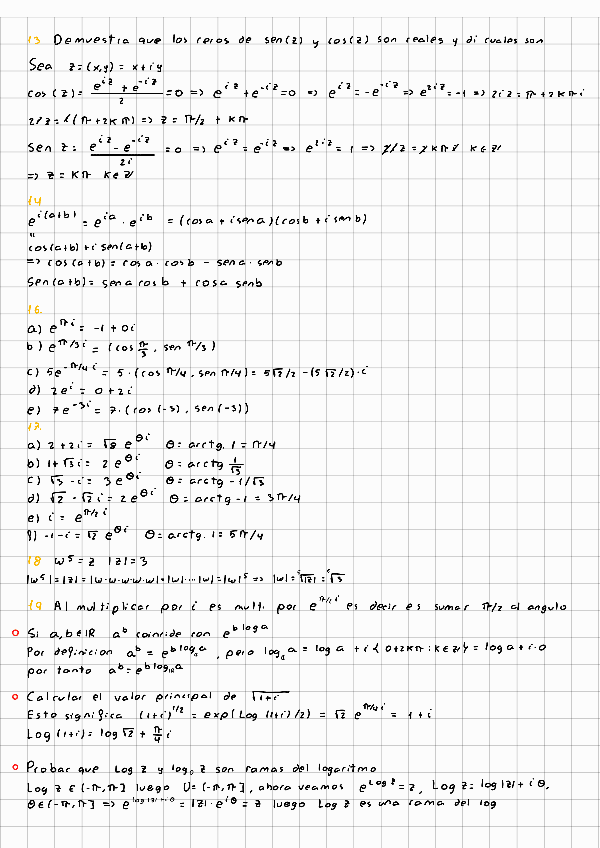 13 Demuestra que los ceros de sen(z) y cos(z) son reales y di cuales son
Sea z=(x,y) = x+iy
cos(z) = (e^{iz} + e^{-iz})/2 = 0 => e^{iz} + e^{-iz} = 0 => e^{iz} = -e^{-iz} => e^{2iz} = -1 => 2iz = π+2kπi
2iz = i(π+2kπ) => z = π/2 + kπ
Sen z = (e^{iz} - e^{-iz})/2i = 0 => e^{iz} = e^{-iz} => e^{2iz} = 1 => 2iz = 2kπi k∈Z
=> z = kπ k∈Z
14
e^{i(a+b)} = e^{ia} · e^{ib} = (cos a + i sen a)(cos b + i sen b)
"
cos(a+b) + i sen(a+b)
=> cos(a+b) = cos a · cos b - sen a · sen b
Sen(a+b) = sen a cos b + cos a sen b
16.
a) e^{πi} = -1 + 0i
b) e^{π/3 i} = (cos π/3, sen π/3)
c) 5e^{-π/4 i} = 5·(cos π/4, sen π/4) = 5√2/2 - (5√2/2)·i
d) 2e^{i} = 0+2i
e) 7e^{-3i} = 7·(cos(-3), sen(-3))
17.
a) 2+2i = √8 e^{θi} θ = arctg. 1 = π/4
b) 1+√3i = 2 e^{θi} θ = arctg 1/√3
c) √3 - i = 3e^{θi} θ = arctg -1/√3
d) √2 - √2i = 2e^{θi} θ = arctg -1 = 3π/4
e) i = e^{π/2 i}
f) -1-i = √2 e^{θi} θ = arctg. 1 = 5π/4
18 w^5 = z |z| = 3
|w^5| = |z| = |w·w·w·w·w| = |w|···|w| = |w|^5 => |w| = ⁵√|z| = ⁵√3
19 Al multiplicar por i es mult. por e^{π/2 i} es decir es sumar π/2 al angulo
Si a,b∈IR a^b coincide con e^{b log a}
Por definicion a^b = e^{b log a}, pero log a = log a + i{0+2kπ : k∈Z} = log a + i·0
por tanto a^b = e^{b log_{IR} a}
Calcular el valor principal de √1+i
Esto significa (1+i)^{1/2} = exp(Log(1+i)/2) = √2 e^{π/4 i} = 1+i
Log(1+i) = log √2 + π/4 i
Probar que Log z y log_0 z son ramas del logaritmo
Log z ∈ (-π,π] luego U = (-π,π], ahora veamos e^{Log z} = z, Log z = log|z| + iθ,
θ∈(-π,π] => e^{log|z|+iθ} = |z|·e^{iθ} = z luego Log z es una rama del log